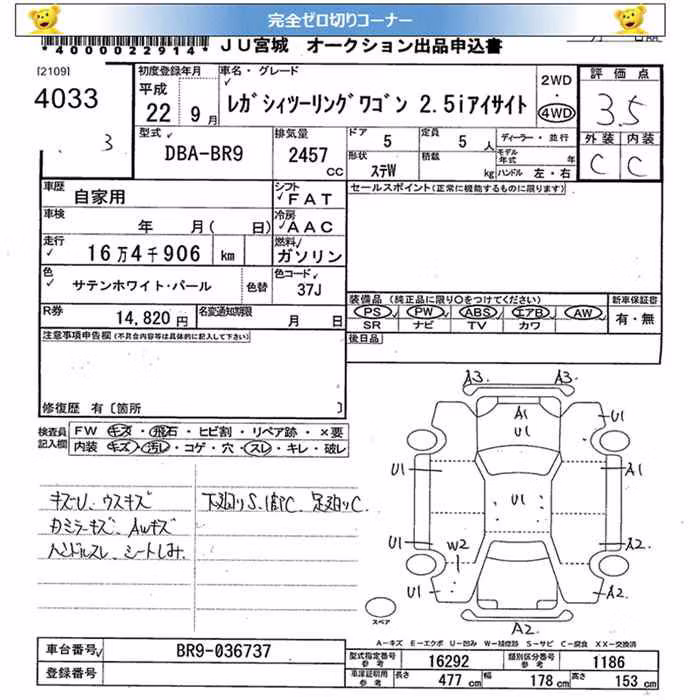 完全ゼロ切りコーナー
*4000022914* JU宮城 オークション出品申込書
[2109]
4033
3
初度登録年月
平成
22 9月
車名・グレード
レガシィツーリングワゴン 2.5iアイサイト
2WD
・
4WD
評価点
3.5
外装 内装
C C
型式
DBA-BR9
排気量
2457
CC
ドア
5
定員
5人
形状
ステW
積載
kg
ディーラー・並行
モデル年式 年
ハンドル 左・右
車歴
自家用
シフト
FAT
車検
年 月( 日)
冷房
AAC
走行
16万4千906 km
燃料
ガソリン
色
サテンホワイト・パール
色替
色コード
37J
R券
14,820円
名変通知期限
月 日
セールスポイント(正常に機能するものに限ります)
装備品(純正品に限り○をつけてください)
PS PW ABS エアB AW
SR ナビ TV カワ
新車保証書
有・無
後日品
注意事項申告欄(不具合内容等は具体的に記入して下さい)
修復歴 有〔箇所 〕
検査員記入欄
FW キズ・飛石・ヒビ割・リペア跡・×要
内装 キズ・汚レ・コゲ・穴・スレ・キレ・破レ
キズU、ウスキズ
カミラーキズ、AWキズ
ハンドルスレ、シートしみ、
下廻りS、1部C、足廻りC、
A3 A3
A1
U1
U1
U1
A1
U1
U1
W2
A2
U1
A2
A2
スペア
A-キズ E-エクボ U-凹み W-補修跡 S-サビ C-腐食 XX-交換済
車台番号
BR9-036737
登録番号
型式指定番号
参考
16292
類別区分番号
参考
1186
車庫証明用
参考
長さ
477 cm
幅
178 cm
高さ
153 cm